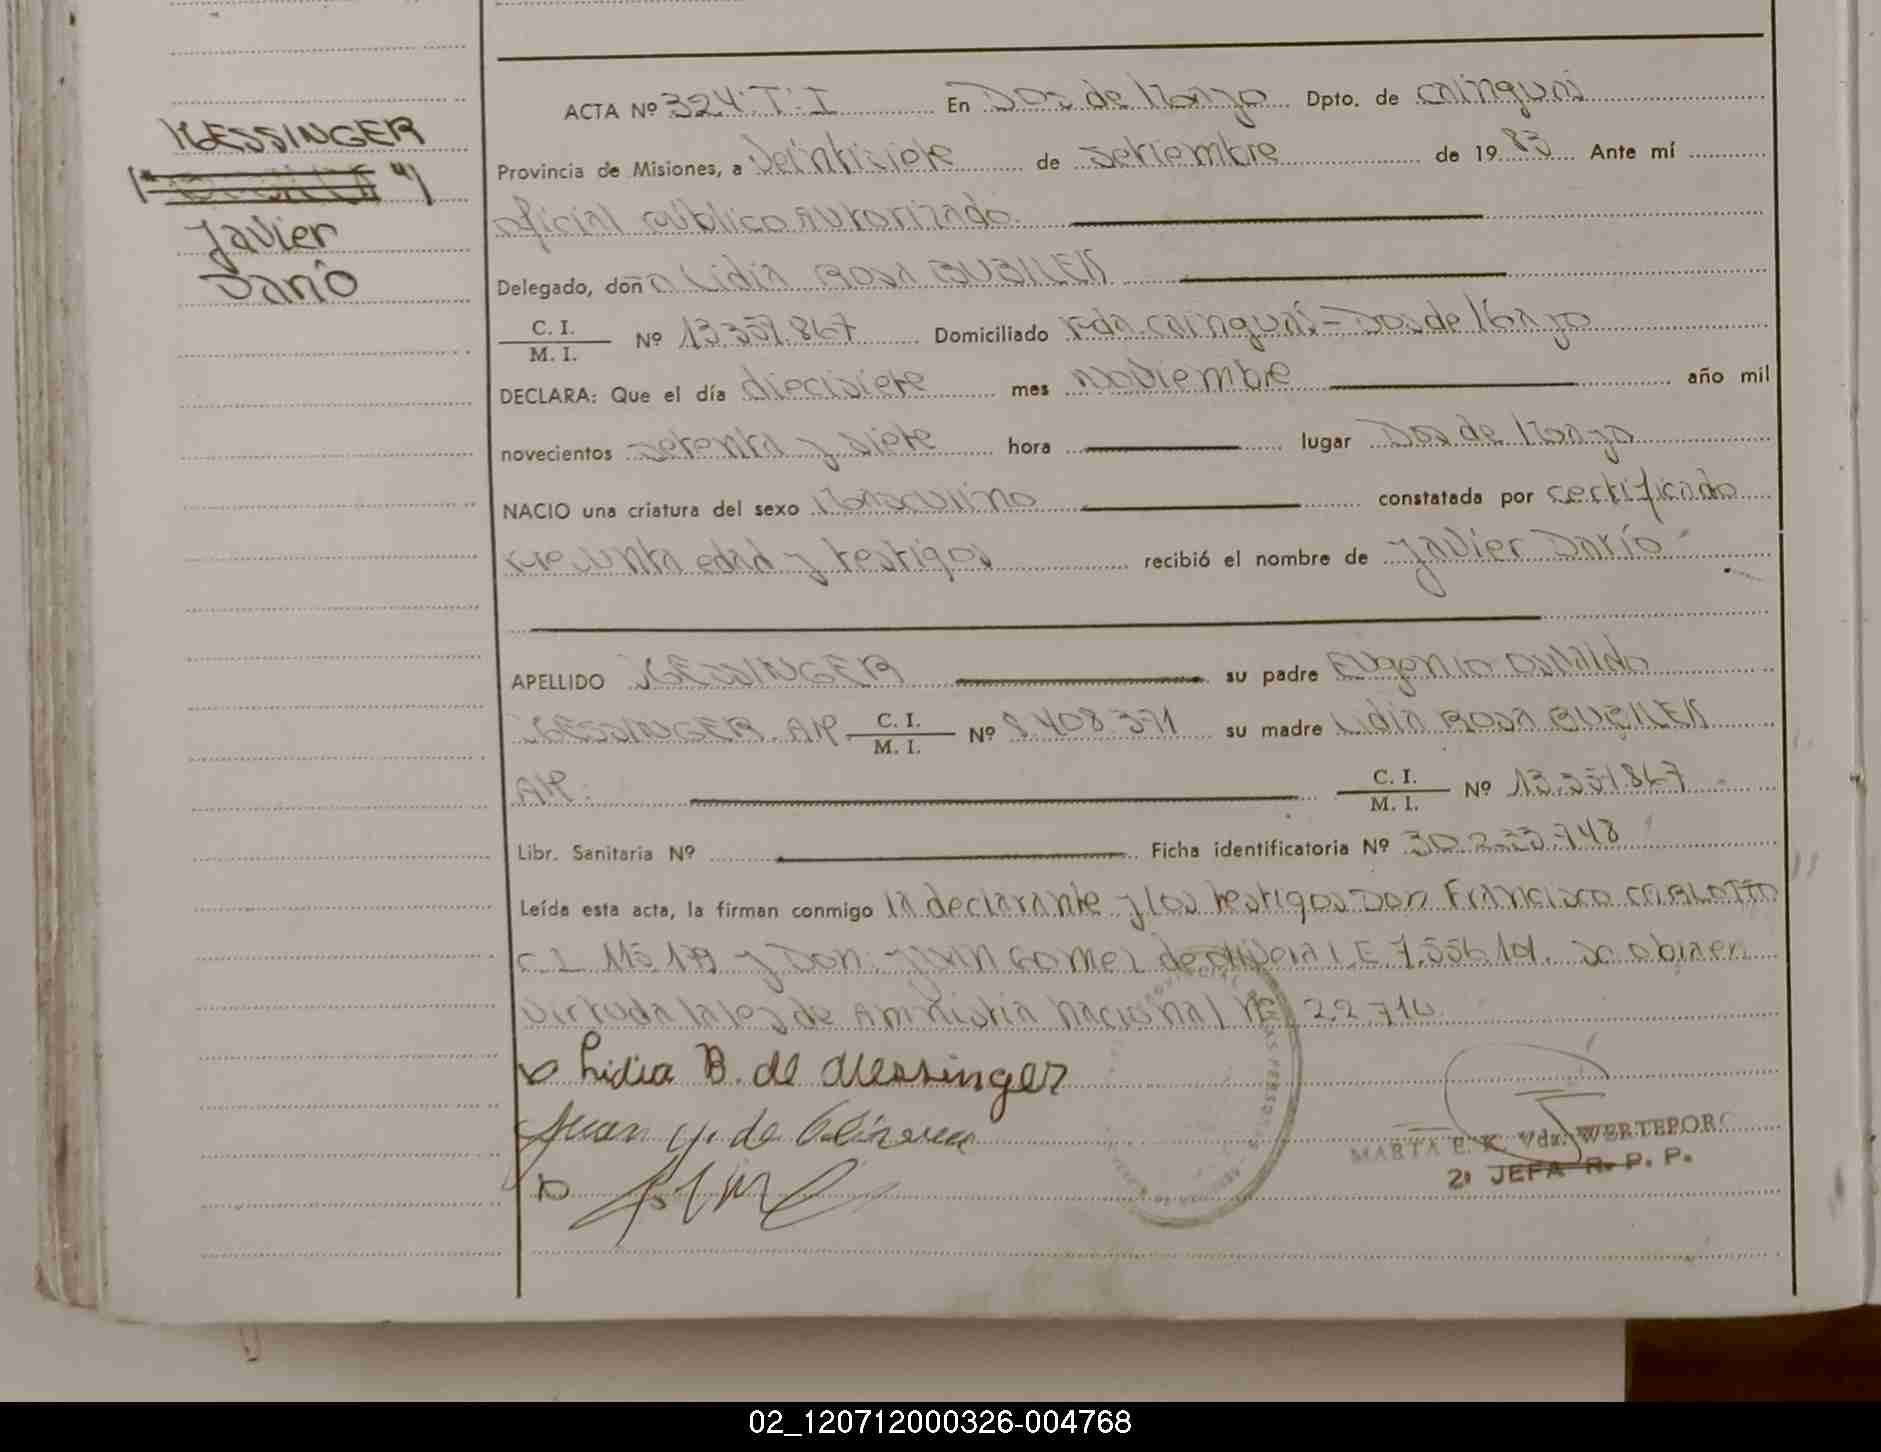 MESSINGER
Javier
Darío
ACTA Nº 324 T. I En Dos de Mayo Dpto. de Cainguas
Provincia de Misiones, a Veintisiete de setiembre de 19 83 Ante mí
oficial público autorizado
Delegado, doña Lidia Rosa
C. I.
M. I. Nº 13.351.867 Domiciliado Cainguas - Dos de Mayo
DECLARA: Que el día diecisiete mes Noviembre año mil
novecientos setenta y siete hora lugar Dos de Mayo
NACIO una criatura del sexo Masculino constatada por certificado
presunta edad y testigos recibió el nombre de Javier Darío
APELLIDO MESSINGER su padre Eugenio Osvaldo
MESSINGER. C. I.
M. I. Nº 8.408.371 su madre Lidia Rosa
C. I.
M. I. Nº 13.351.867
Libr. Sanitaria Nº Ficha identificatoria Nº 30.233.748
Leída esta acta, la firman conmigo la declarante y los testigos Don Francisco
C.I. y Don: Juan Gomez de I.E 7.556.101.
virtud a la ley de Amnistia Nacional Nº 22.710
Lidia B. de Messinger
Juan G. de Olivera
MARTA E. K. Vda. WERTEPORC
2ª JEFA R. P. P.
02_120712000326-004768